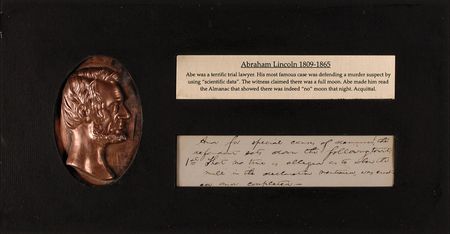 Abraham Lincoln 1809-1865
Abe was a terrific trial lawyer. His most famous case was defending a murder suspect by
using "scientific data". The witness claimed there was a full moon. Abe made him read
the Almanac that showed there was indeed "no" moon that night. Acquittal.
And for special causes of demurrer, the
sets down the following, to wit
1st That no time is alleged as to when the
in the declaration mentioned, was